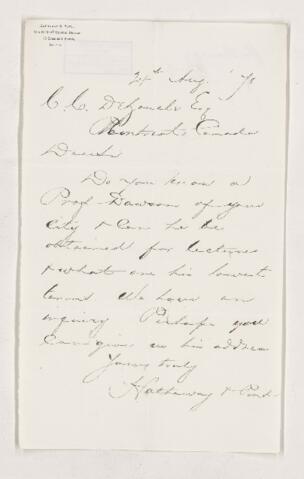 Aug
C. C.
Esq
Montreal Canada
Dear Sir
Do you know a
Prof. Dawson of your
city & can he be
obtained for lectures
& what are his lowest
terms We have an
inquiry Perhaps you
can give us his address
Yours truly
Hathaway & Pond